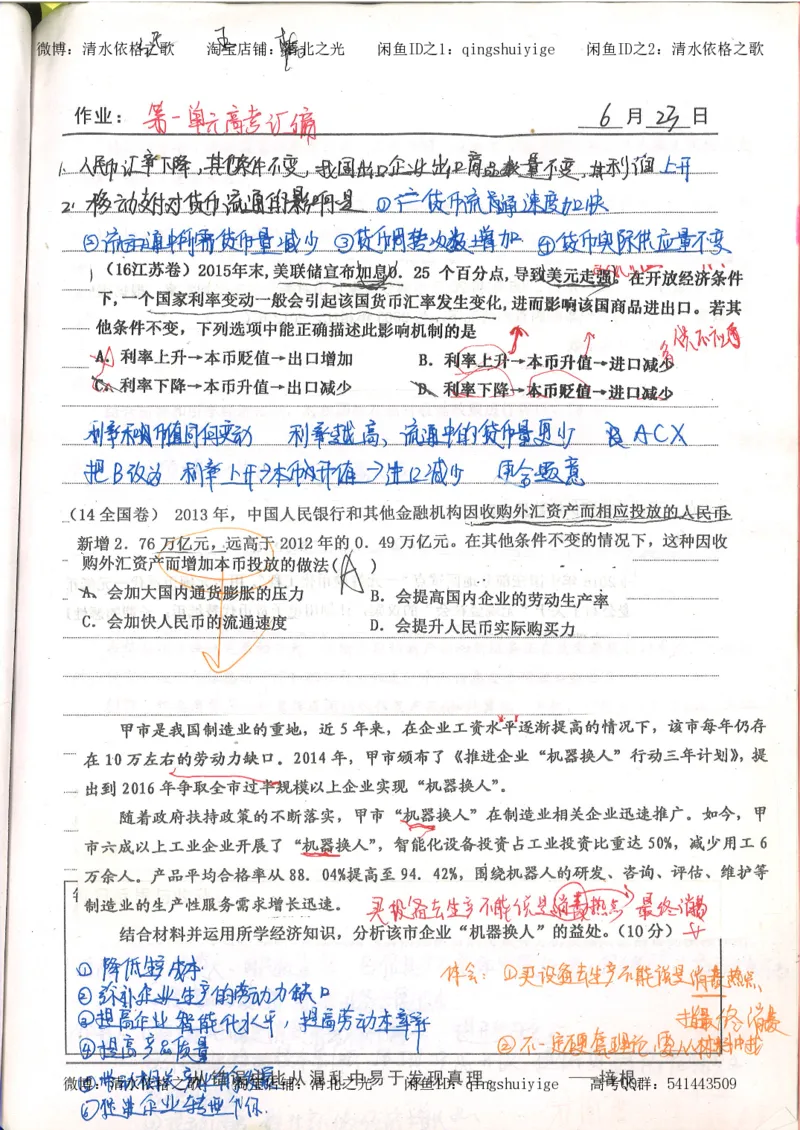 微博：清水依格之歌 淘宝店铺：清北之光 闲鱼ID之1：qingshuiyige 闲鱼ID之2：清水依格之歌
作业：第一单元高考汇编 6月23日
1. 人民币汇率下降，其他条件不变，我国出口企业出口商品数量不变，其利润上升
2. 移动支付对货币流通的影响是 ①货币流通速度加快
②流通中所需货币量减少 ③货币周转次数增加 ④货币实际供应量不变
（16江苏卷）2015年末，美联储宣布加息0．25 个百分点，导致美元走强。在开放经济条件
下，一个国家利率变动一般会引起该国货币汇率发生变化，进而影响该国商品进出口。若其
他条件不变，下列选项中能正确描述此影响机制的是
A．利率上升→本币贬值→出口增加 B．利率上升→本币升值→进口减少
C．利率下降→本币升值→出口减少 D．利率下降→本币贬值→进口减少
利率和币值同向变动 利率越高，流通中的货币量更少 ACX
把B改为 利率上升→本币升值→出口减少 更合题意
（14全国卷） 2013 年，中国人民银行和其他金融机构因收购外汇资产而相应投放的人民币
新增2．76 万亿元，远高于 2012 年的 0．49 万亿元。在其他条件不变的情况下，这种因收
购外汇资产而增加本币投放的做法（A ）
A、会加大国内通货膨胀的压力 B．会提高国内企业的劳动生产率
C．会加快人民币的流通速度 D．会提升人民币实际购买力
甲市是我国制造业的重地，近 5 年来，在企业工资水平逐渐提高的情况下，该市每年仍存
在 10 万左右的劳动力缺口。2014 年，甲市颁布了《推进企业“机器换人”行动三年计划》，提
出到 2016 年争取全市过半规模以上企业实现“机器换人”。
随着政府扶持政策的不断落实，甲市“机器换人”在制造业相关企业迅速推广。如今，甲
市六成以上工业企业开展了“机器换人”，智能化设备投资占工业投资比重达 50%，减少用工 6
万余人。产品平均合格率从 88．04%提高至 94．42%，围绕机器人的研发、咨询、评估、维护等
制造业的生产性服务需求增长迅速。 买设备去生产不能说是消费热点 最终消费
结合材料并运用所学经济知识，分析该市企业“机器换人”的益处。（10 分）
①降低生产成本
②弥补企业生产的劳动力缺口
③提高企业智能化水平，提高劳动生产率
④提高产品质量
体会：①买设备去生产不能说是消费热点，
指最终消费
②不一定硬套理论，要从材料中找
微博：清水依格之歌 淘宝店铺：清北之光 闲鱼ID之1：qingshuiyige 高考QQ群：541443509
从错误中比从混乱中易于发现真理。 ——培根
⑥促进企业转型升级.